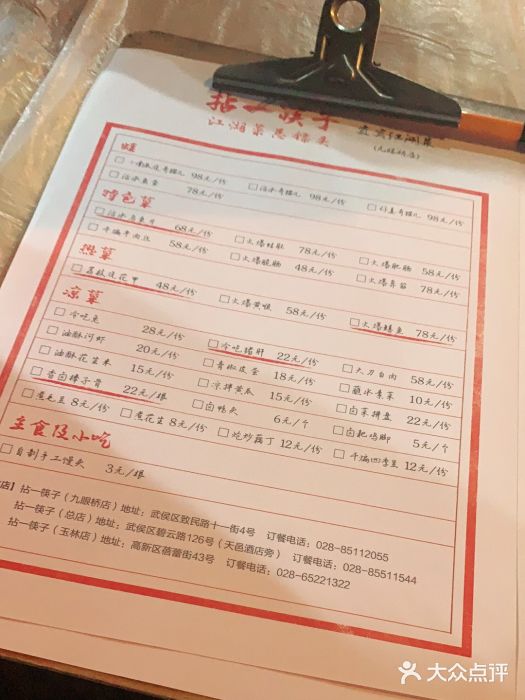 拈一筷子
江湖菜怎镖头
煨
98元/份 □活水奇猫儿 98元/份 98元/份
78元/份
特色菜
□活水乌鱼片 68元/份 □火爆蛙肚 78元/份 □火爆肥肠 58元/份
□干煸牛肉丝 58元/份 □火爆脆肠 48元/份 78元/份
热菜
□荔枝炝花甲 48元/份 □火爆黄喉 58元/份 □火爆鳝鱼 78元/份
凉菜
□冷吃兔 28元/份 □冷吃猪肝 22元/份 □大刀白肉 58元/份
□油酥河虾 20元/份 □青椒皮蛋 18元/份 □蘸水青菜 10元/份
□油酥花生米 15元/份 □凉拌黄瓜 15元/份 □卤菜拼盘 22元/份
□香卤棒子骨 22元/根 □卤鸭头 6元/个 □卤耙鸡脚 5元/个
□煮毛豆 8元/份 □煮花生 8元/份 □炝炒藕丁 12元/份 □干煸四季豆 12元/份
主食及小吃
□自制手工馒头 3元/根
店】拈一筷子（九眼桥店）地址：武侯区致民路十一街4号 订餐电话：028-85112055
拈一筷子（总店）地址：武侯区碧云路126号（天邑酒店旁） 订餐电话：028-85511544
拈一筷子（玉林店）地址：高新区蓓蕾街43号 订餐电话：028-65221322
大众点评